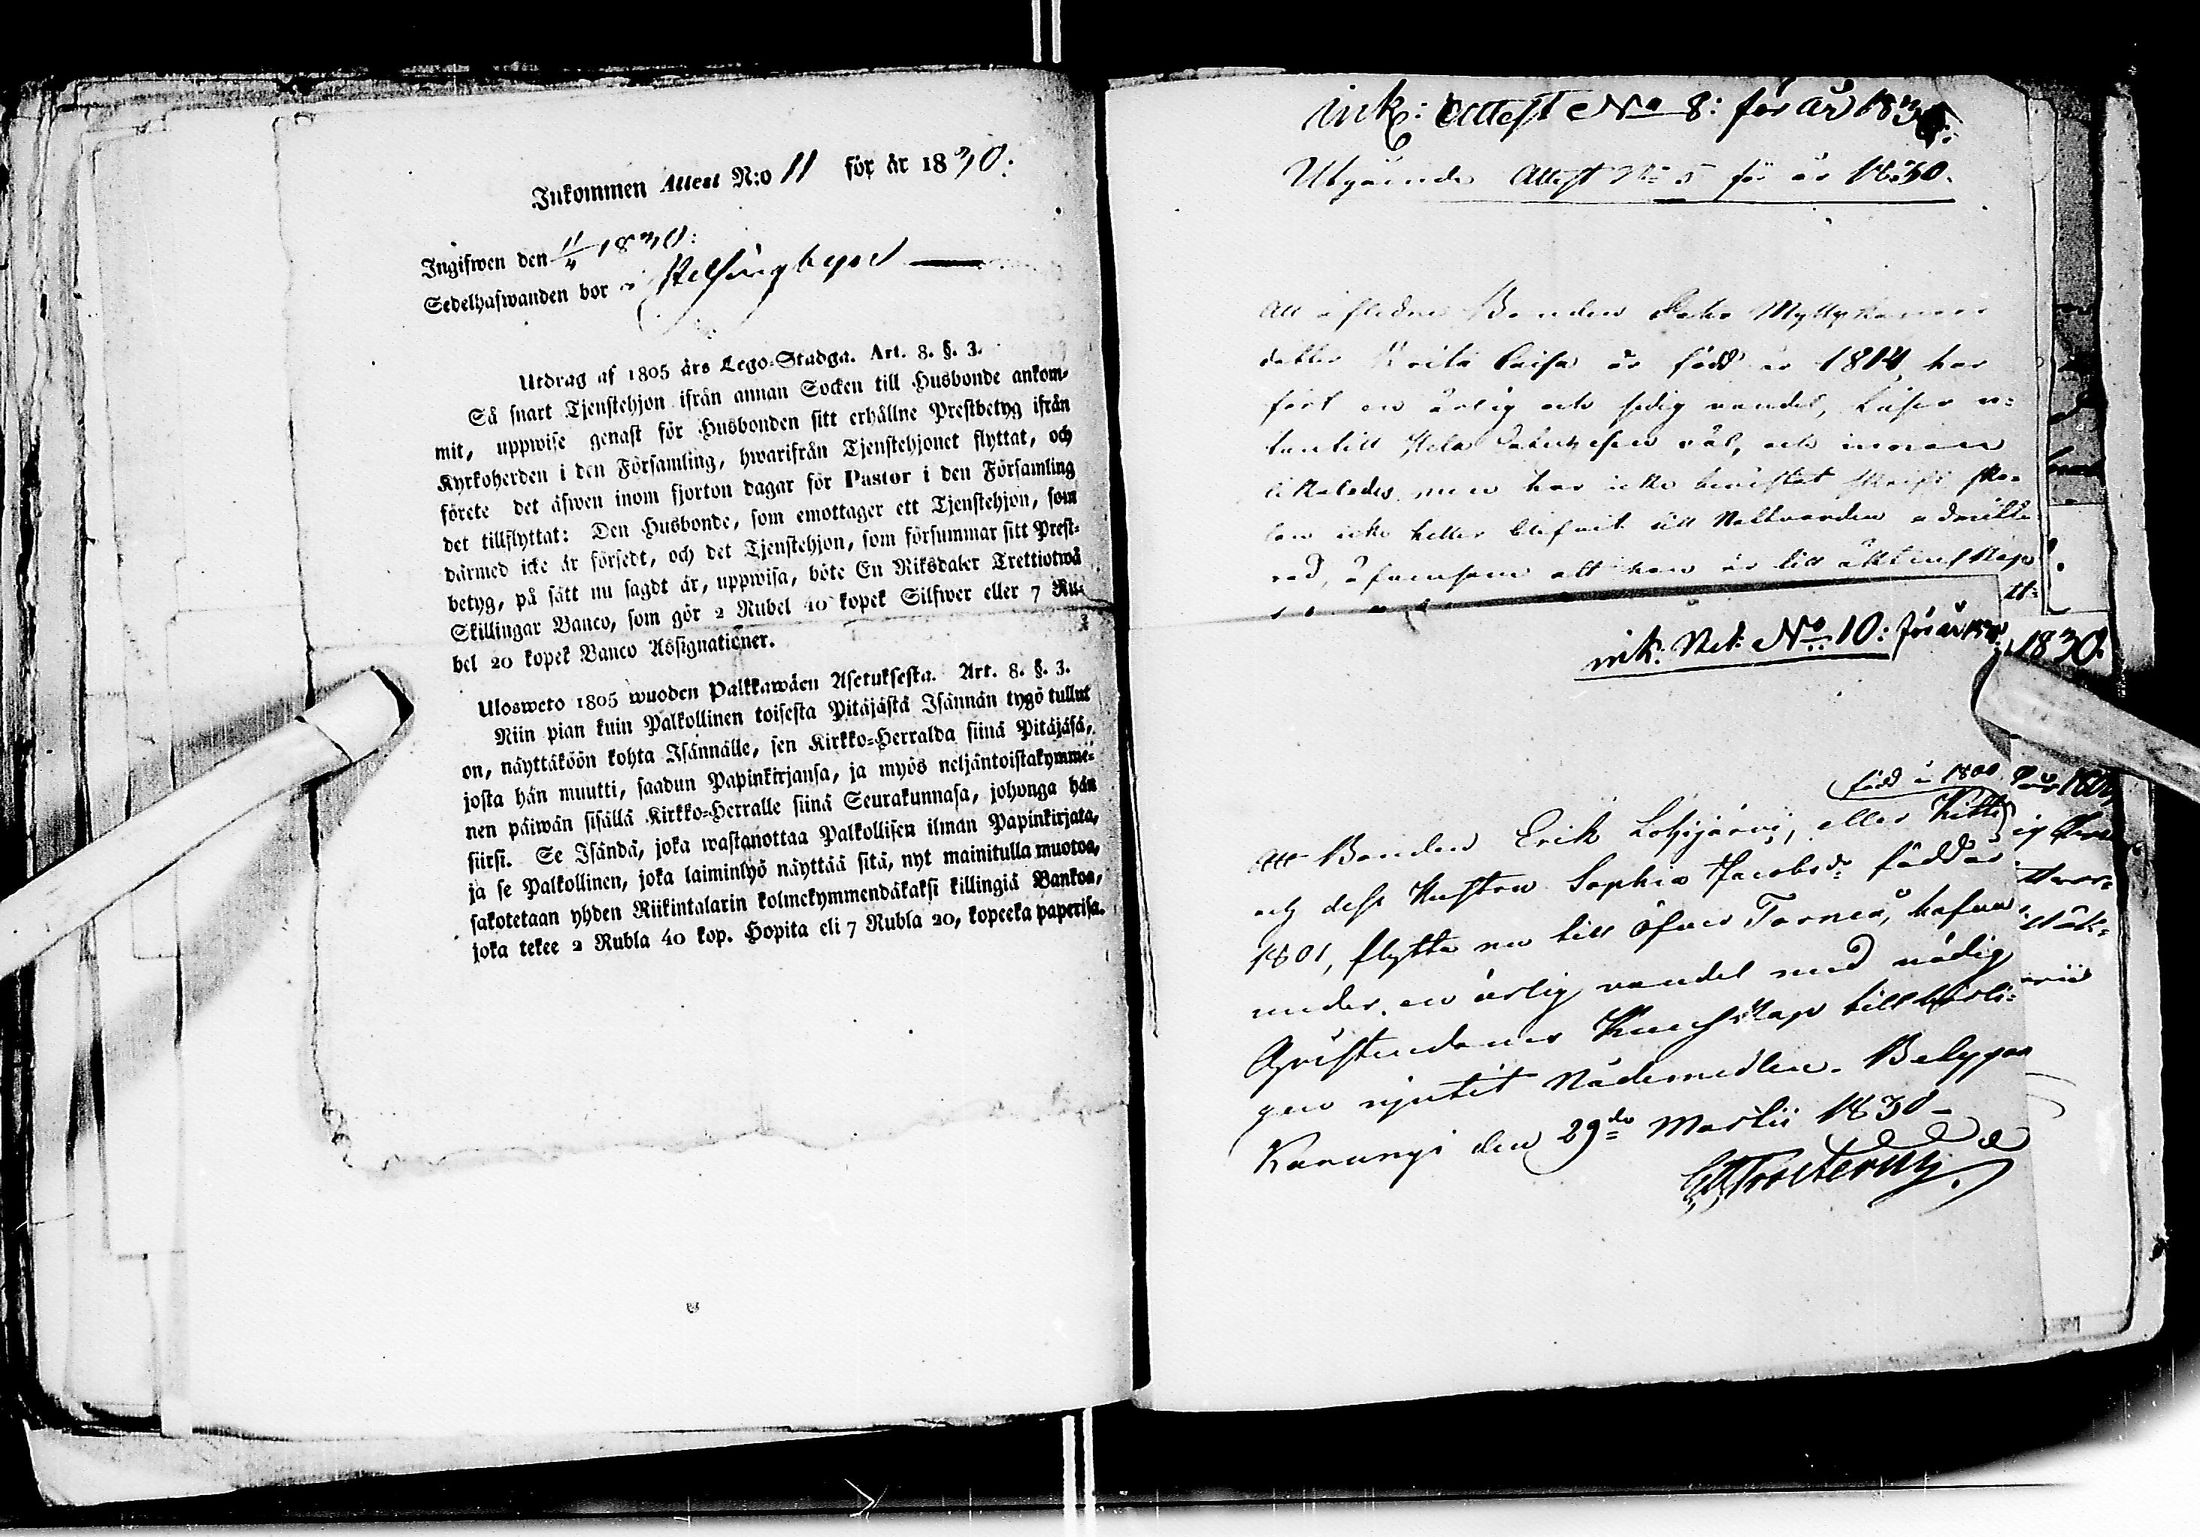 Inkommen Attest N:o 11 för år 1830.
Ingifwen den 11/4 1830:
Sedelhafwanden bor i Helsingbyn
Utdrag af 1805 års Lego-Stadga. Art. 8. §. 3.
Så snart Tjenstehjon ifrån annan Socken till Husbonde ankom-
mit, uppwise genast för Husbonden sitt erhållne Prestbetyg ifrån
Kyrkoherden i den Församling, hwarifrån Tjenstehjonet flyttat, och
förete det äfwen inom fjorton dagar för Pastor i den Församling
det tillflyttat: Den Husbonde, som emottager ett Tjenstehjon, som
därmed icke är försedt, och det Tjenstehjon, som försummar sitt Prest-
betyg, på sätt nu sagdt är, uppwisa, böte En Riksdaler Trettiotwå
Skillingar Banco, som gör 2 Rubel 40 kopek Silfwer eller 7 Ru-
bel 20 kopek Banco Assignationer.
Ulosweto 1805 wuoden Palkkawäen Asetuksesta. Art. 8. §. 3.
Niin pian kuin Palkollinen toisesta Pitäjästä Isännän tygö tullut
on, näyttäköön kohta Isännälle, sen Kirkko-Herralda siinä Pitäjäsä,
josta hän muutti, saadun Papinkirjansa, ja myös neljäntoistakymme-
nen päiwän sisällä Kirkko-Herralle siinä Seurakunnasa, johonga hän
siirsi. Se Isändä, joka wastanottaa Palkollisen ilman Papinkirjata,
ja se Palkollinen, joka laiminlyö näyttää sitä, nyt mainitulla muotoa,
sakotetaan yhden Riikintalarin kolmekymmendäkaksi killingiä Bankoa,
joka tekee 2 Rubla 40 kop. Hopita eli 7 Rubla 20, kopeeka paperisa.
ink: Attest No 8: för år 1830:
Utgående Attest No 5 för år 1830.
Att afledne Bonden Myllykangas
dotter Brita Caisa är född år 1814, har
fört en ärlig och sedig vandel, Läser u-
tantill Hela väl, och innan
likaledes, men har icke bevistat skrift sko-
lan icke heller blifvit till Nattvarden admitte
rad, äfvensom att hon är till äktenskap
tt-
ink: Att: No 10: för år 1830. 1830.
född år 1800
Att Bonden Erik Lohijärvi, eller Kitti
och dess Hustru Sophia Jacobsdr födda
1801, flytta nu till Öfver Torneå, hafva
under en ärlig vandel med nödig
Christendoms Kunskap tillbörli-
gen njutit Nådemedlen. Betygar
Karungi den 29de Martii 1830